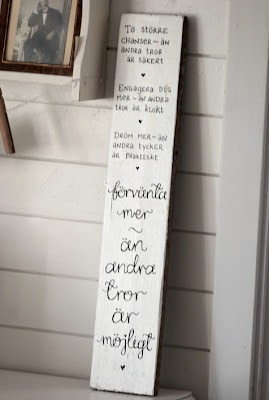 Ta större
chanser~än
andra tror
är säkert
Engagera dig
mer~än andra
tror är klokt
Dröm mer~än
andra tycker
är praktiskt
förvänta
mer
~
än
andra
tror
är
möjligt